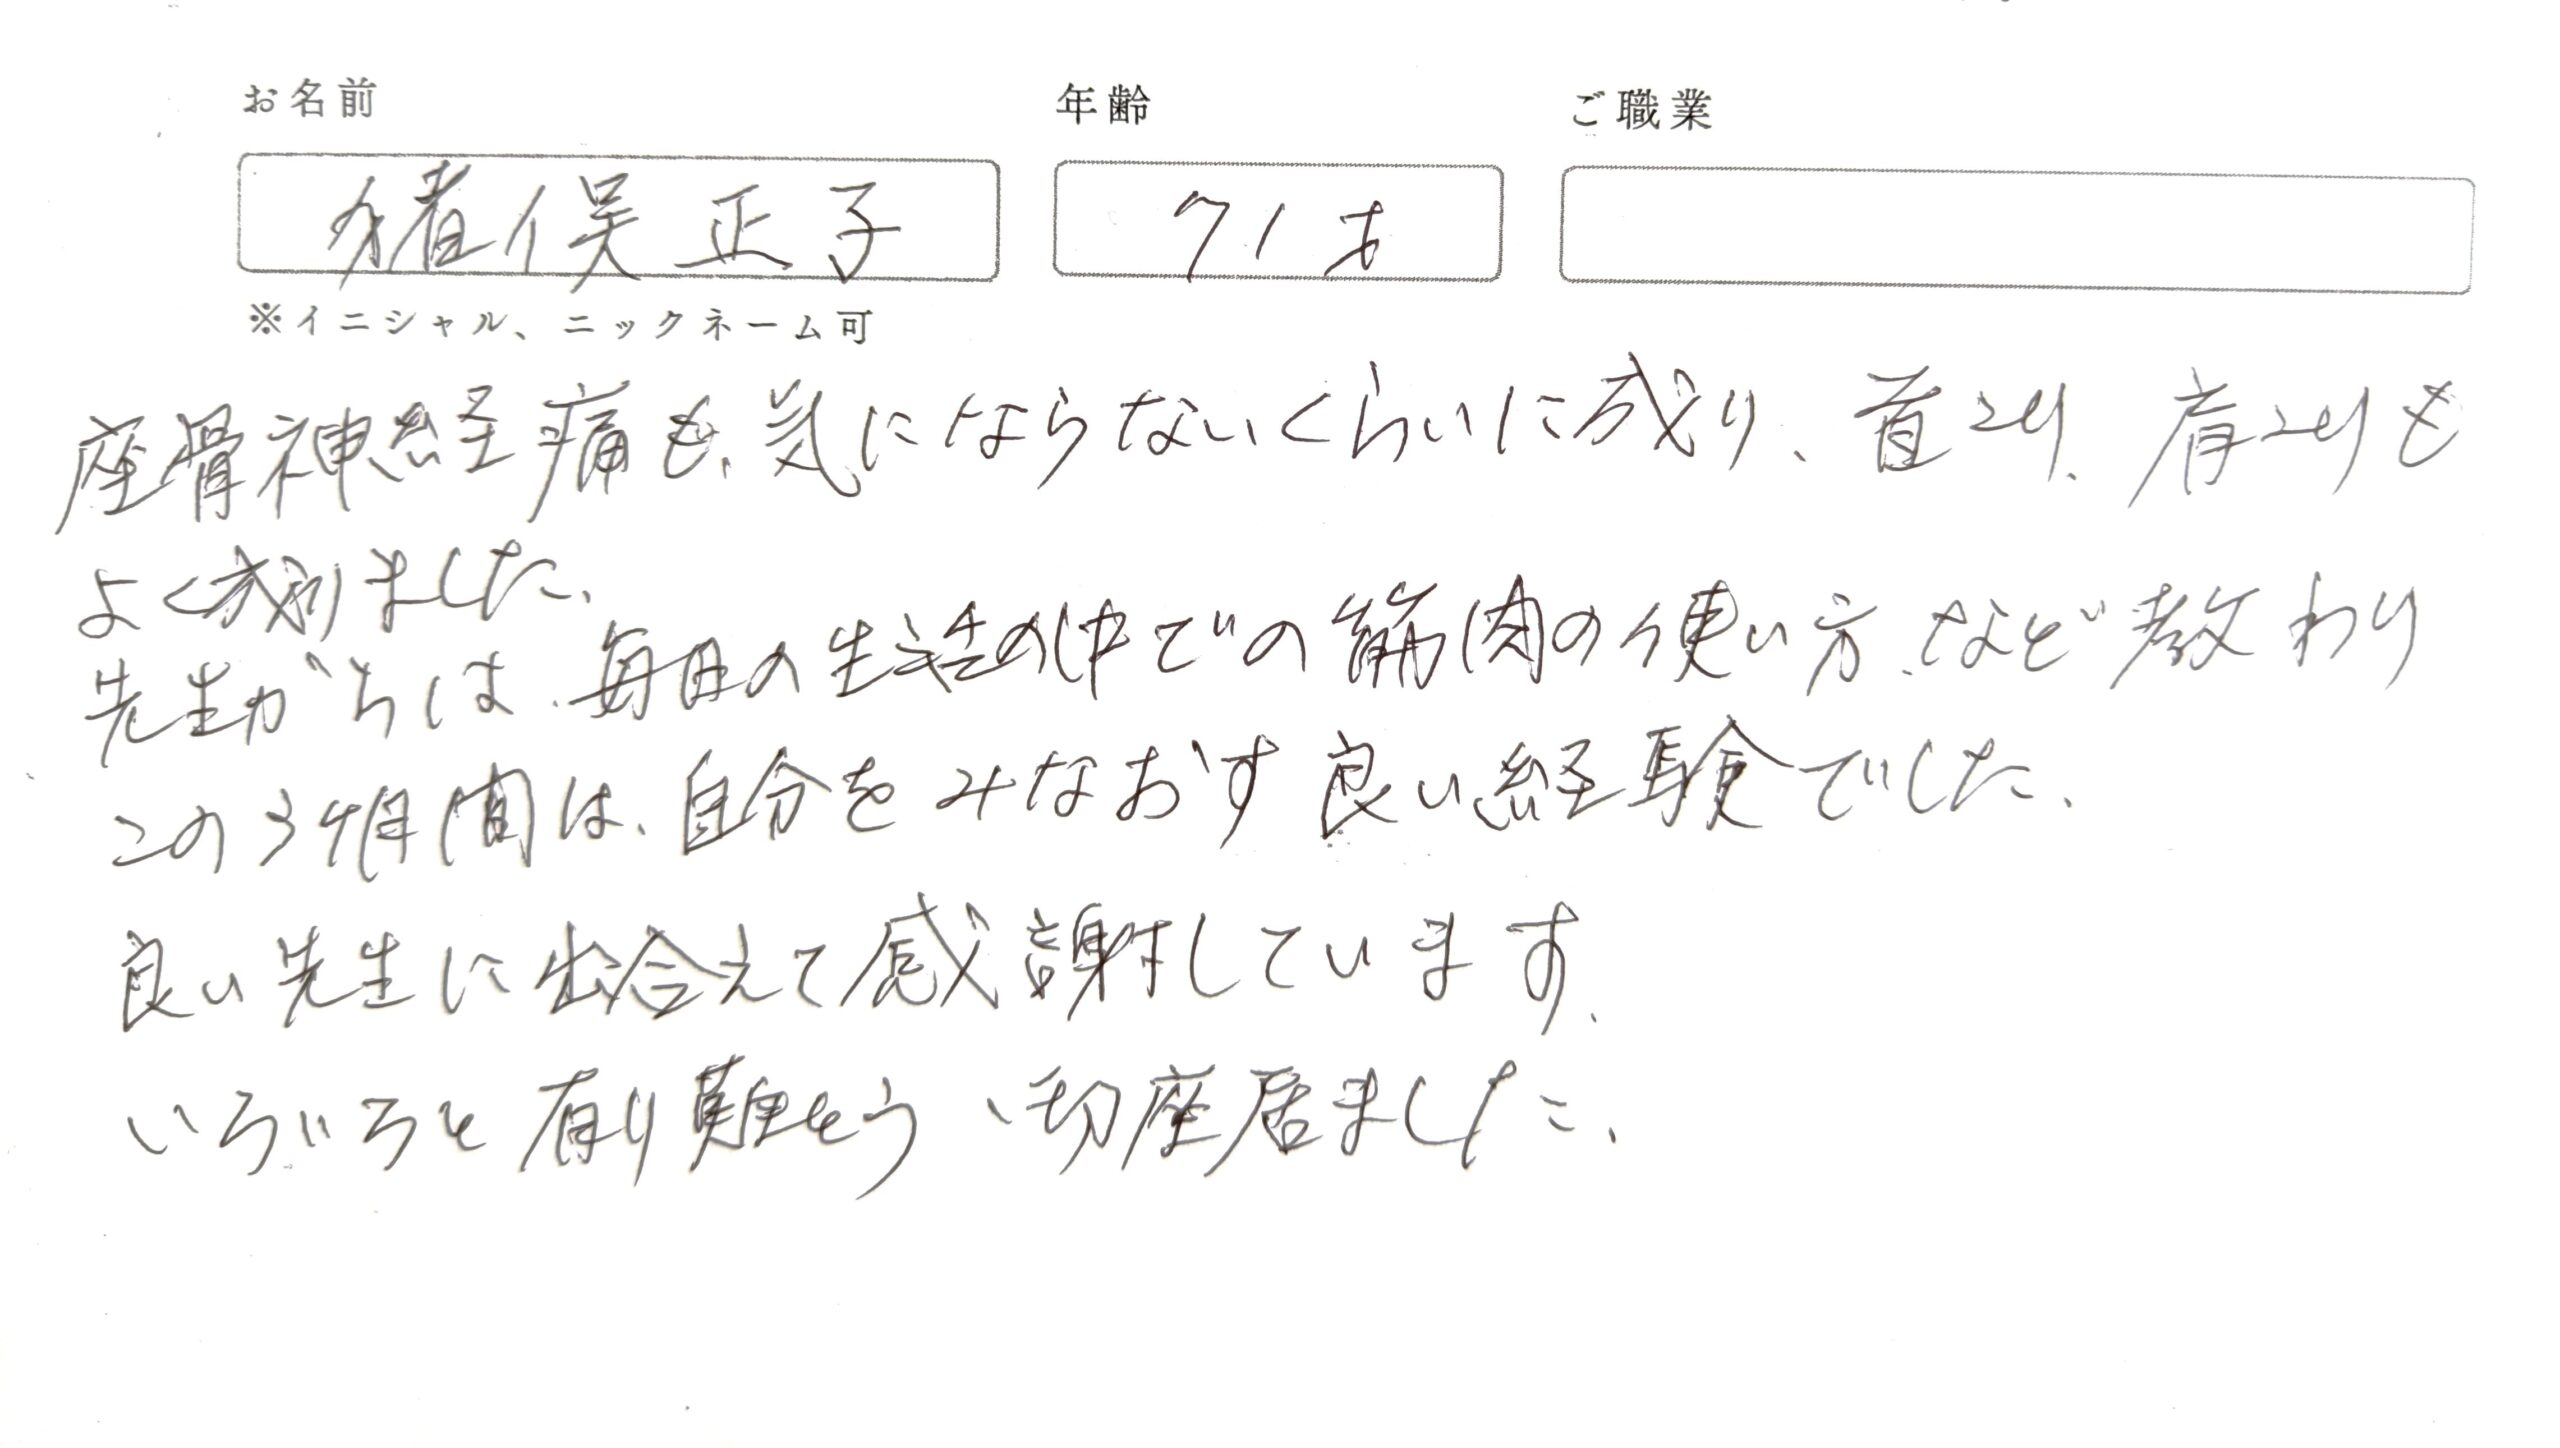 お名前 年齢 ご職業
猪俣正子 71才
※イニシャル、ニックネーム可
座骨神経痛も、気にならないくらいに成り、首こり、肩こりも
よく成りました、
先生からは、毎日の生活の中での筋肉の使い方、など教わり
この3ヶ月間は、自分をみなおす良い経験でした、
良い先生に出合えて感謝しています、
いろいろと有り難とう 切座居ました、